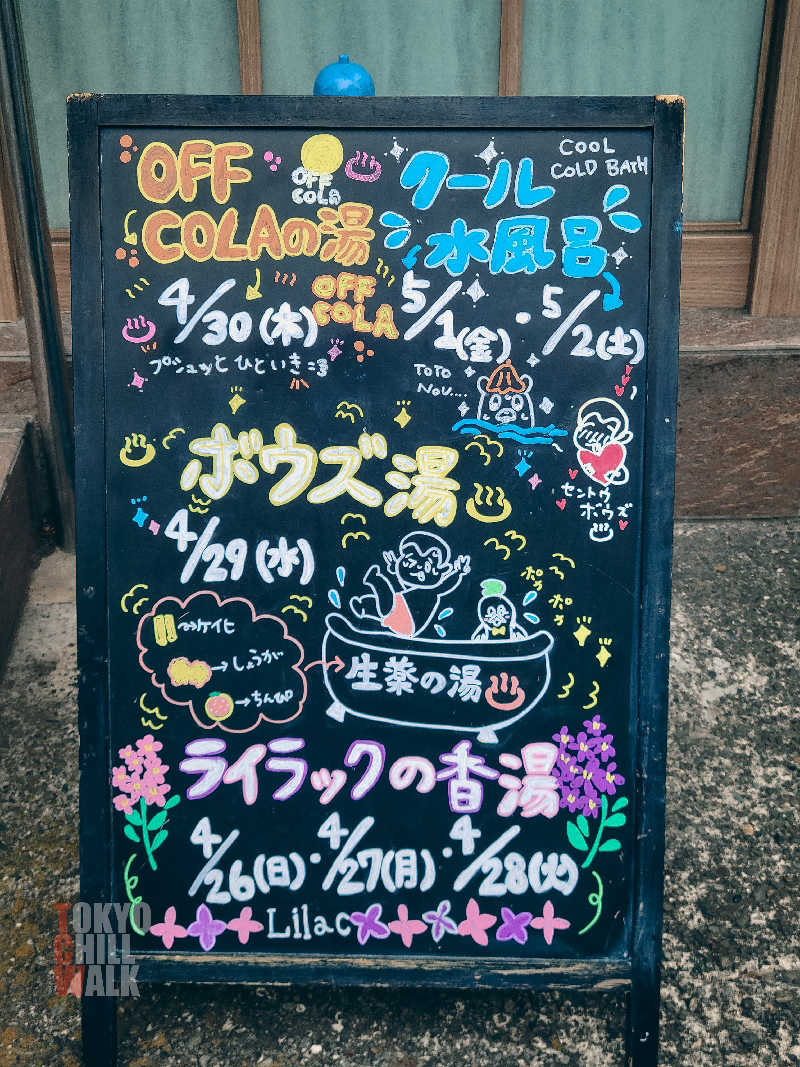 OFF
COLAの湯
OFF
COLA
4/30(木)
OFF
COLA
プシュッとひといき
クール
水風呂
COOL
COLD BATH
5/1(金)・5/2(土)
TOTO
NOU....
セントウ
ボウズ
ボウズ湯
4/29(水)
→ケイヒ
→しょうが
→ちんぴ
生薬の湯
ポカ
ポカ
ライラックの香湯
4/26(日)・4/27(月)・4/28(火)
Lilac
TOKYO
CHILL
WALK